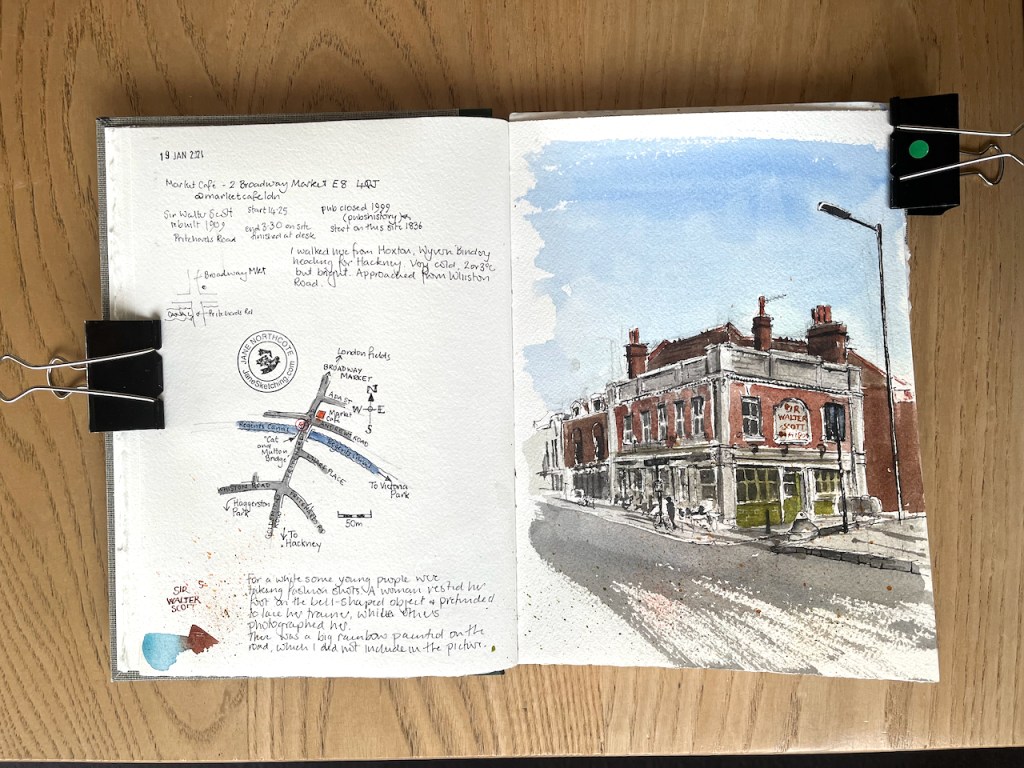 19 JAN 2024
Market Café - 2 Broadway Market E8 4QJ
@marketcafeldn
Sir Walter Scott
rebuilt 1909
Pritchards Road
start 14:25
end 3:30 on site
finished at desk
pub closed 1999
(pubshistory)
start on this site 1836
I walked here from Hoxton, Wyvern Bindery
heading for Hackney. Very cold, 2 or 3°C
but bright. Approached from Whiston
Road.
Broadway Mkt
Pritchards Rd
JANE NORTHCOTE
JaneSketching.com
London Fields
BROADWAY
MARKET
N
W
E
S
ADA ST
Market
Café
ANDREWS ROAD
Regents Canal
Regents Canal
"Cat
and
Mutton
Bridge
PLACE
ROAD
To Victoria
Park
Haggerston
Park
50m
To
Hackney
SIR
WALTER
SCOTT
For a while some young people were
taking fashion shots. A woman rested her
foot on the bell-shaped object & pretended
to lace her trainer, while others
photographed her.
There was a big rainbow painted on the
road, which I did not include in the picture.
SIR
WALTER
SCOTT